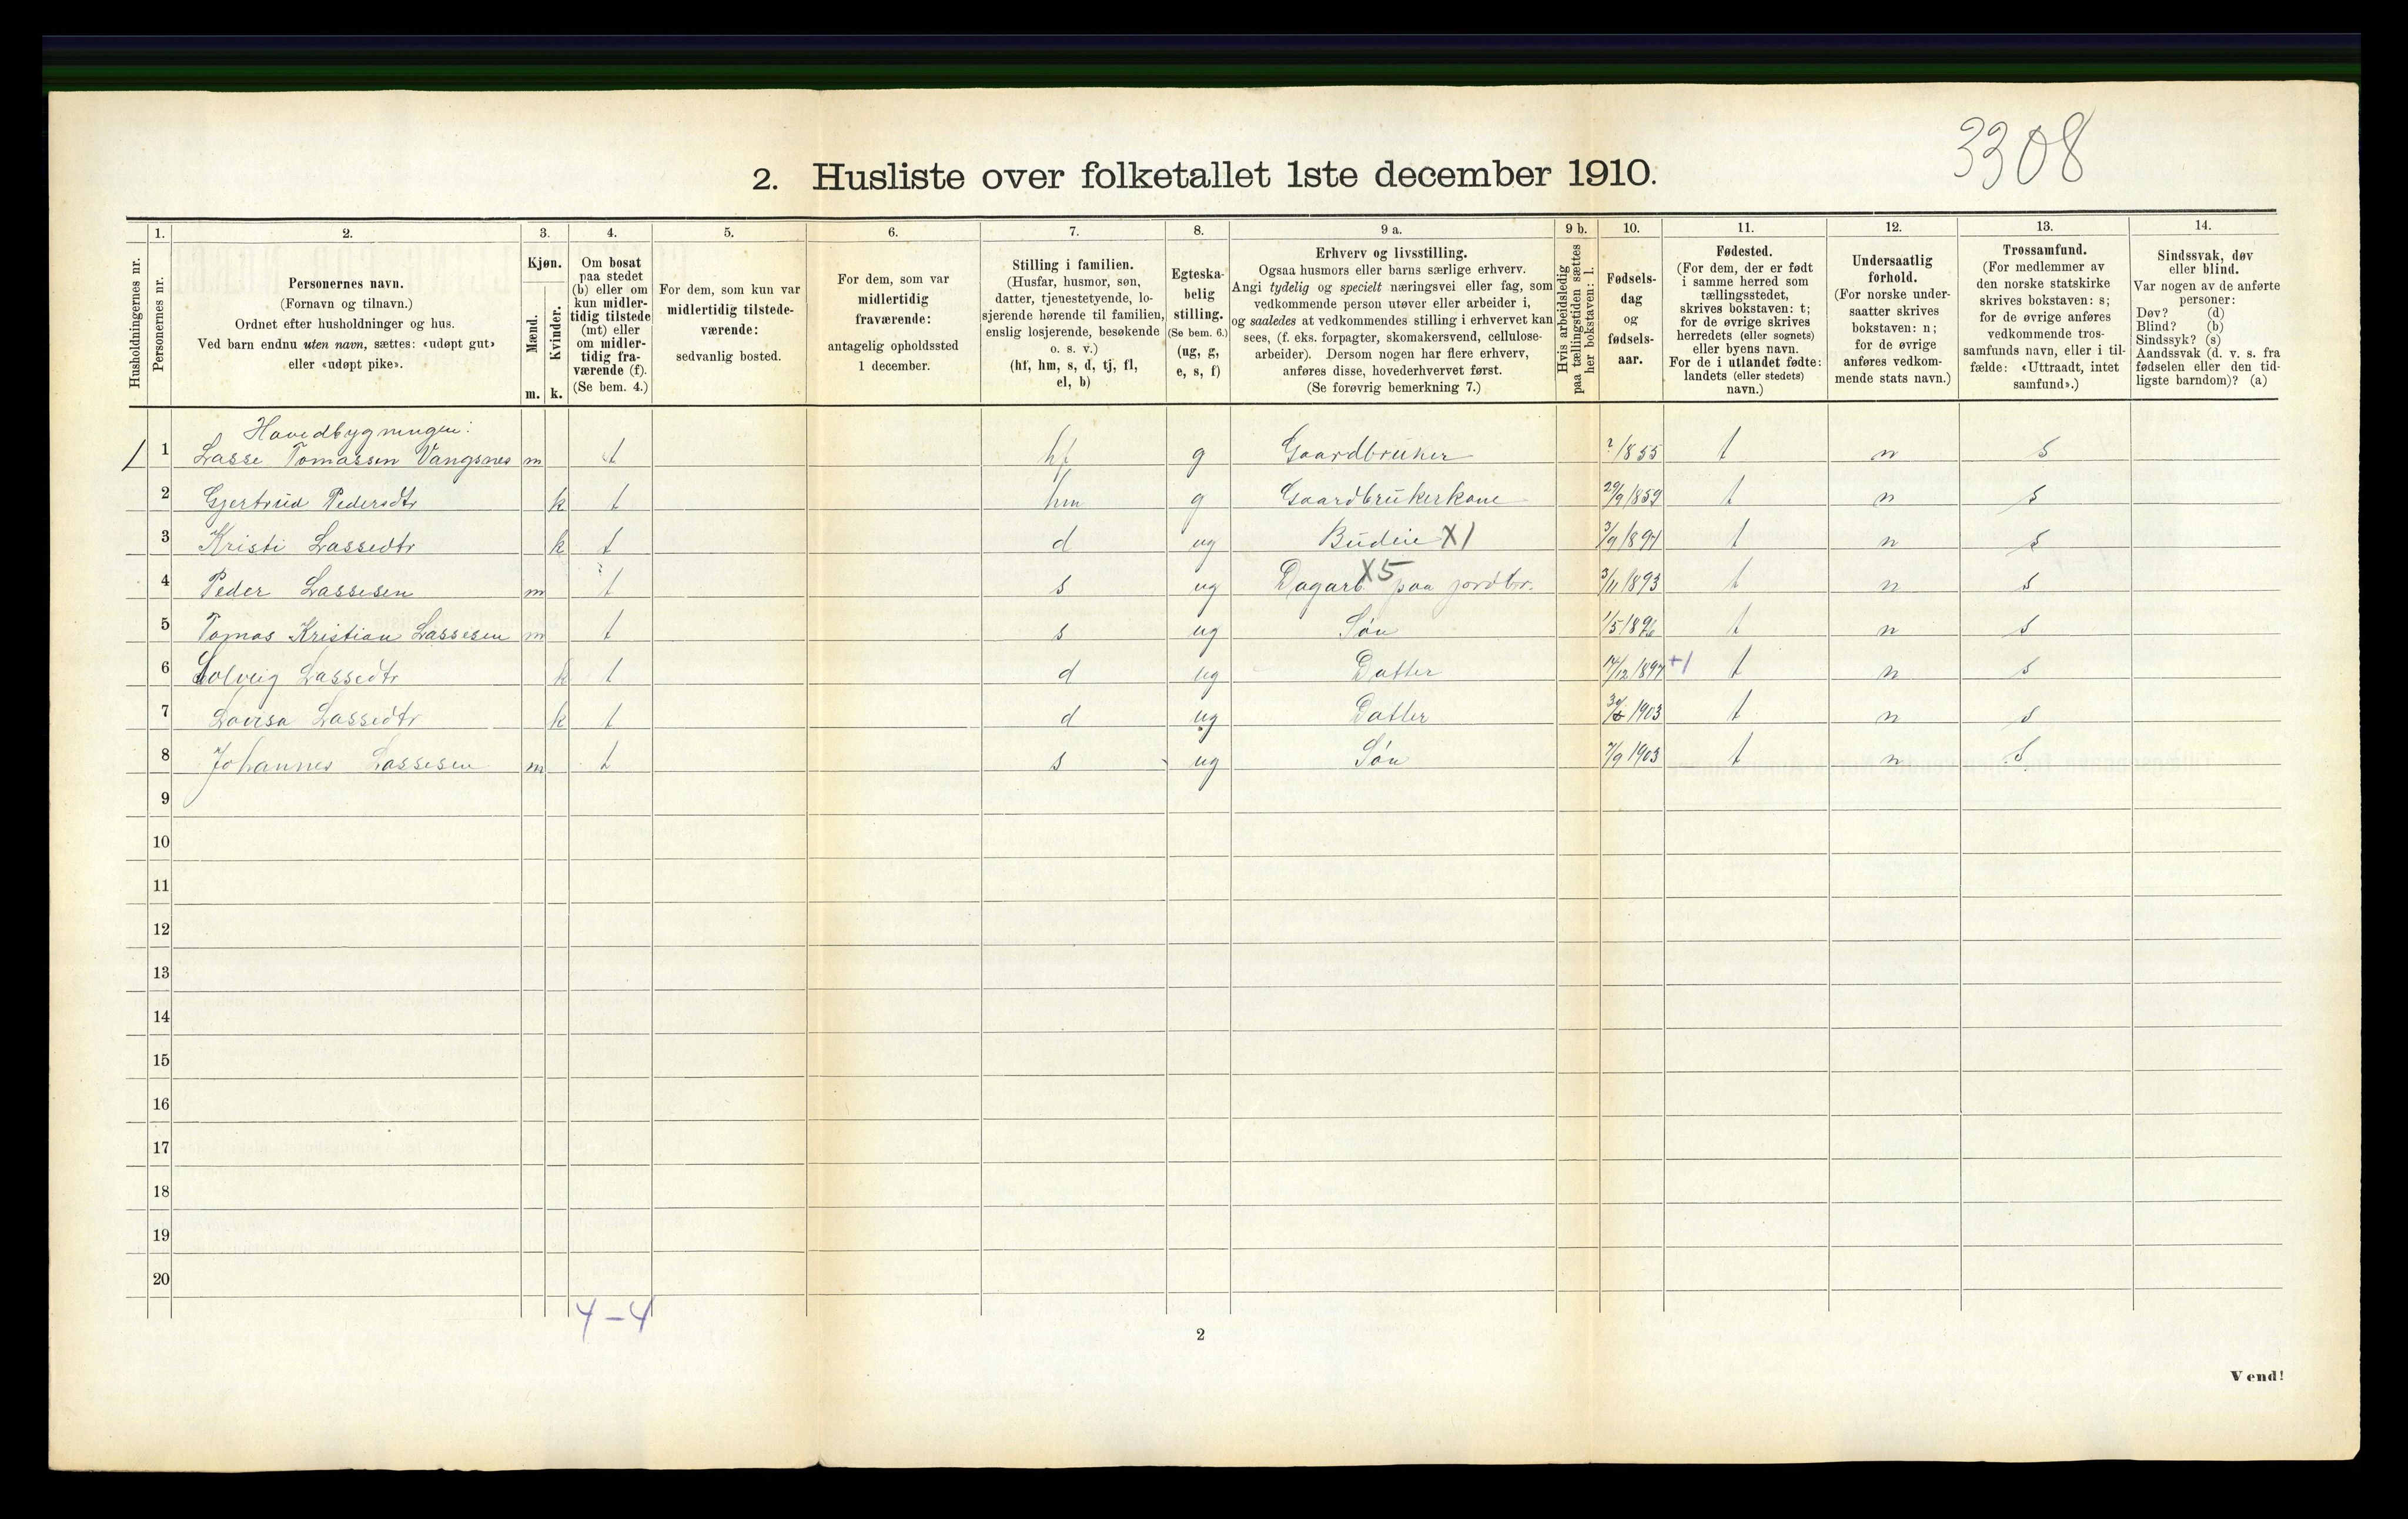 3308
2. Husliste over folketallet 1ste december 1910.
Husholdningernes nr.
1.
Personernes nr.
2.
Personernes navn.
(Fornavn og tilnavn.)
Ordnet efter husholdninger og hus.
Ved barn endnu uten navn, sættes: «udøpt gut»
eller «udøpt pike».
3.
Kjøn.
Mænd.
Kvinder.
m. k.
4.
Om bosat
paa stedet
(b) eller om
kun midler-
tidig tilstede
(mt) eller
om midler-
tidig fra-
værende (f).
(Se bem. 4.)
5.
For dem, som kun var
midlertidig tilstede-
værende:
sedvanlig bosted.
6.
For dem, som var
midlertidig
fraværende:
antagelig opholdssted
1 december.
7.
Stilling i familien.
(Husfar, husmor, søn,
datter, tjenestetyende, lo-
sjerende hørende til familien,
enslig losjerende, besøkende
o. s. v.)
(hf, hm, s, d, tj, fl,
el, b)
8.
Egteska-
belig
stilling.
(Se bem. 6.)
(ug, g,
e, s, f)
9 a.
Erhverv og livsstilling.
Ogsaa husmors eller barns særlige erhverv.
Angi tydelig og specielt næringsvei eller fag, som
vedkommende person utøver eller arbeider i,
og saaledes at vedkommendes stilling i erhvervet kan
sees, (f. eks. forpagter, skomakersvend, cellulose-
arbeider). Dersom nogen har flere erhverv,
anføres disse, hovederhvervet først.
(Se forøvrig bemerkning 7.)
9 b.
Hvis arbeidsledig
paa tællingstiden sættes
her bokstaven: l.
10.
Fødsels-
dag
og
fødsels-
aar.
11.
Fødested.
(For dem, der er født
i samme herred som
tællingsstedet,
skrives bokstaven: t;
for de øvrige skrives
herredets (eller sognets)
eller byens navn.
For de i utlandet fødte:
landets (eller stedets)
navn.)
12.
Undersaatlig
forhold.
(For norske under-
saatter skrives
bokstaven: n;
for de øvrige
anføres vedkom-
mende stats navn.)
13.
Trossamfund.
(For medlemmer av
den norske statskirke
skrives bokstaven: s;
for de øvrige anføres
vedkommende tros-
samfunds navn, eller i til-
fælde: «Uttraadt, intet
samfund».)
14.
Sindssvak, døv
eller blind.
Var nogen av de anførte
personer:
Døv? (d)
Blind? (b)
Sindssyk? (s)
Aandssvak (d. v. s. fra
fødselen eller den tid-
ligste barndom)? (a)
Hovedbygningen:
1 1 Lasse Tomassen Vangsnes m t hf g Gaardbruker ?/1855 t n s
2 Gjertrud Pedersdtr k t hm g Gaardbrukerkone 29/9 1859 t n s
3 Kristi Lassedtr k t d ug Budeie X1 3/9 1891 t n s
4 Peder Lassesen m t s ug Dagarb. X5 paa jordbr. 3/11 1893 t n s
5 Tomas Kristian Lassesen m t s ug Søn 1/5 1896 t n s
6 Solveig Lassedtr k t d ug Datter 14/12 1897 +1 t n s
7 Lovisa Lassedtr k t d ug Datter 1903 t n s
8 Johannes Lassesen m t s ug Søn 7/9 1903 t n s
9
10
11
12
13
14
15
16
17
18
19
20
4-4
2
Vend!